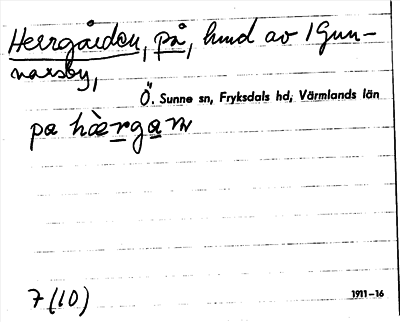 Herrgården, på, hmd av 1 Gun-
narsby,
Ö. Sunne sn, Fryksdals hd, Värmlands län
pa hærgaɴ
7 (10) 1911–16